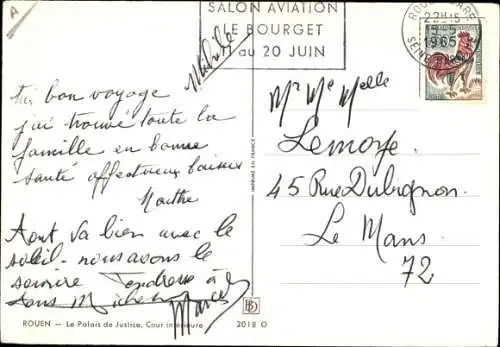 A
SALON AVIATION
LE BOURGET
au 20 JUIN
ROUEN GARE
22H15
1965
SEINE
bon voyage
j'ai trouvé toute la
famille en bonne
santé affectueux baisers
Marthe
Tout va bien avec le
soleil - nous avons le
sourire Tendresse à
tous Michel
Marcel
Mr Me Melle
Lemoye
45 Rue Dubignon.
Le Mans
72
IMPRIMÉ EN FRANCE
ROUEN — Le Palais de Justice, Cour intérieure
2018 O